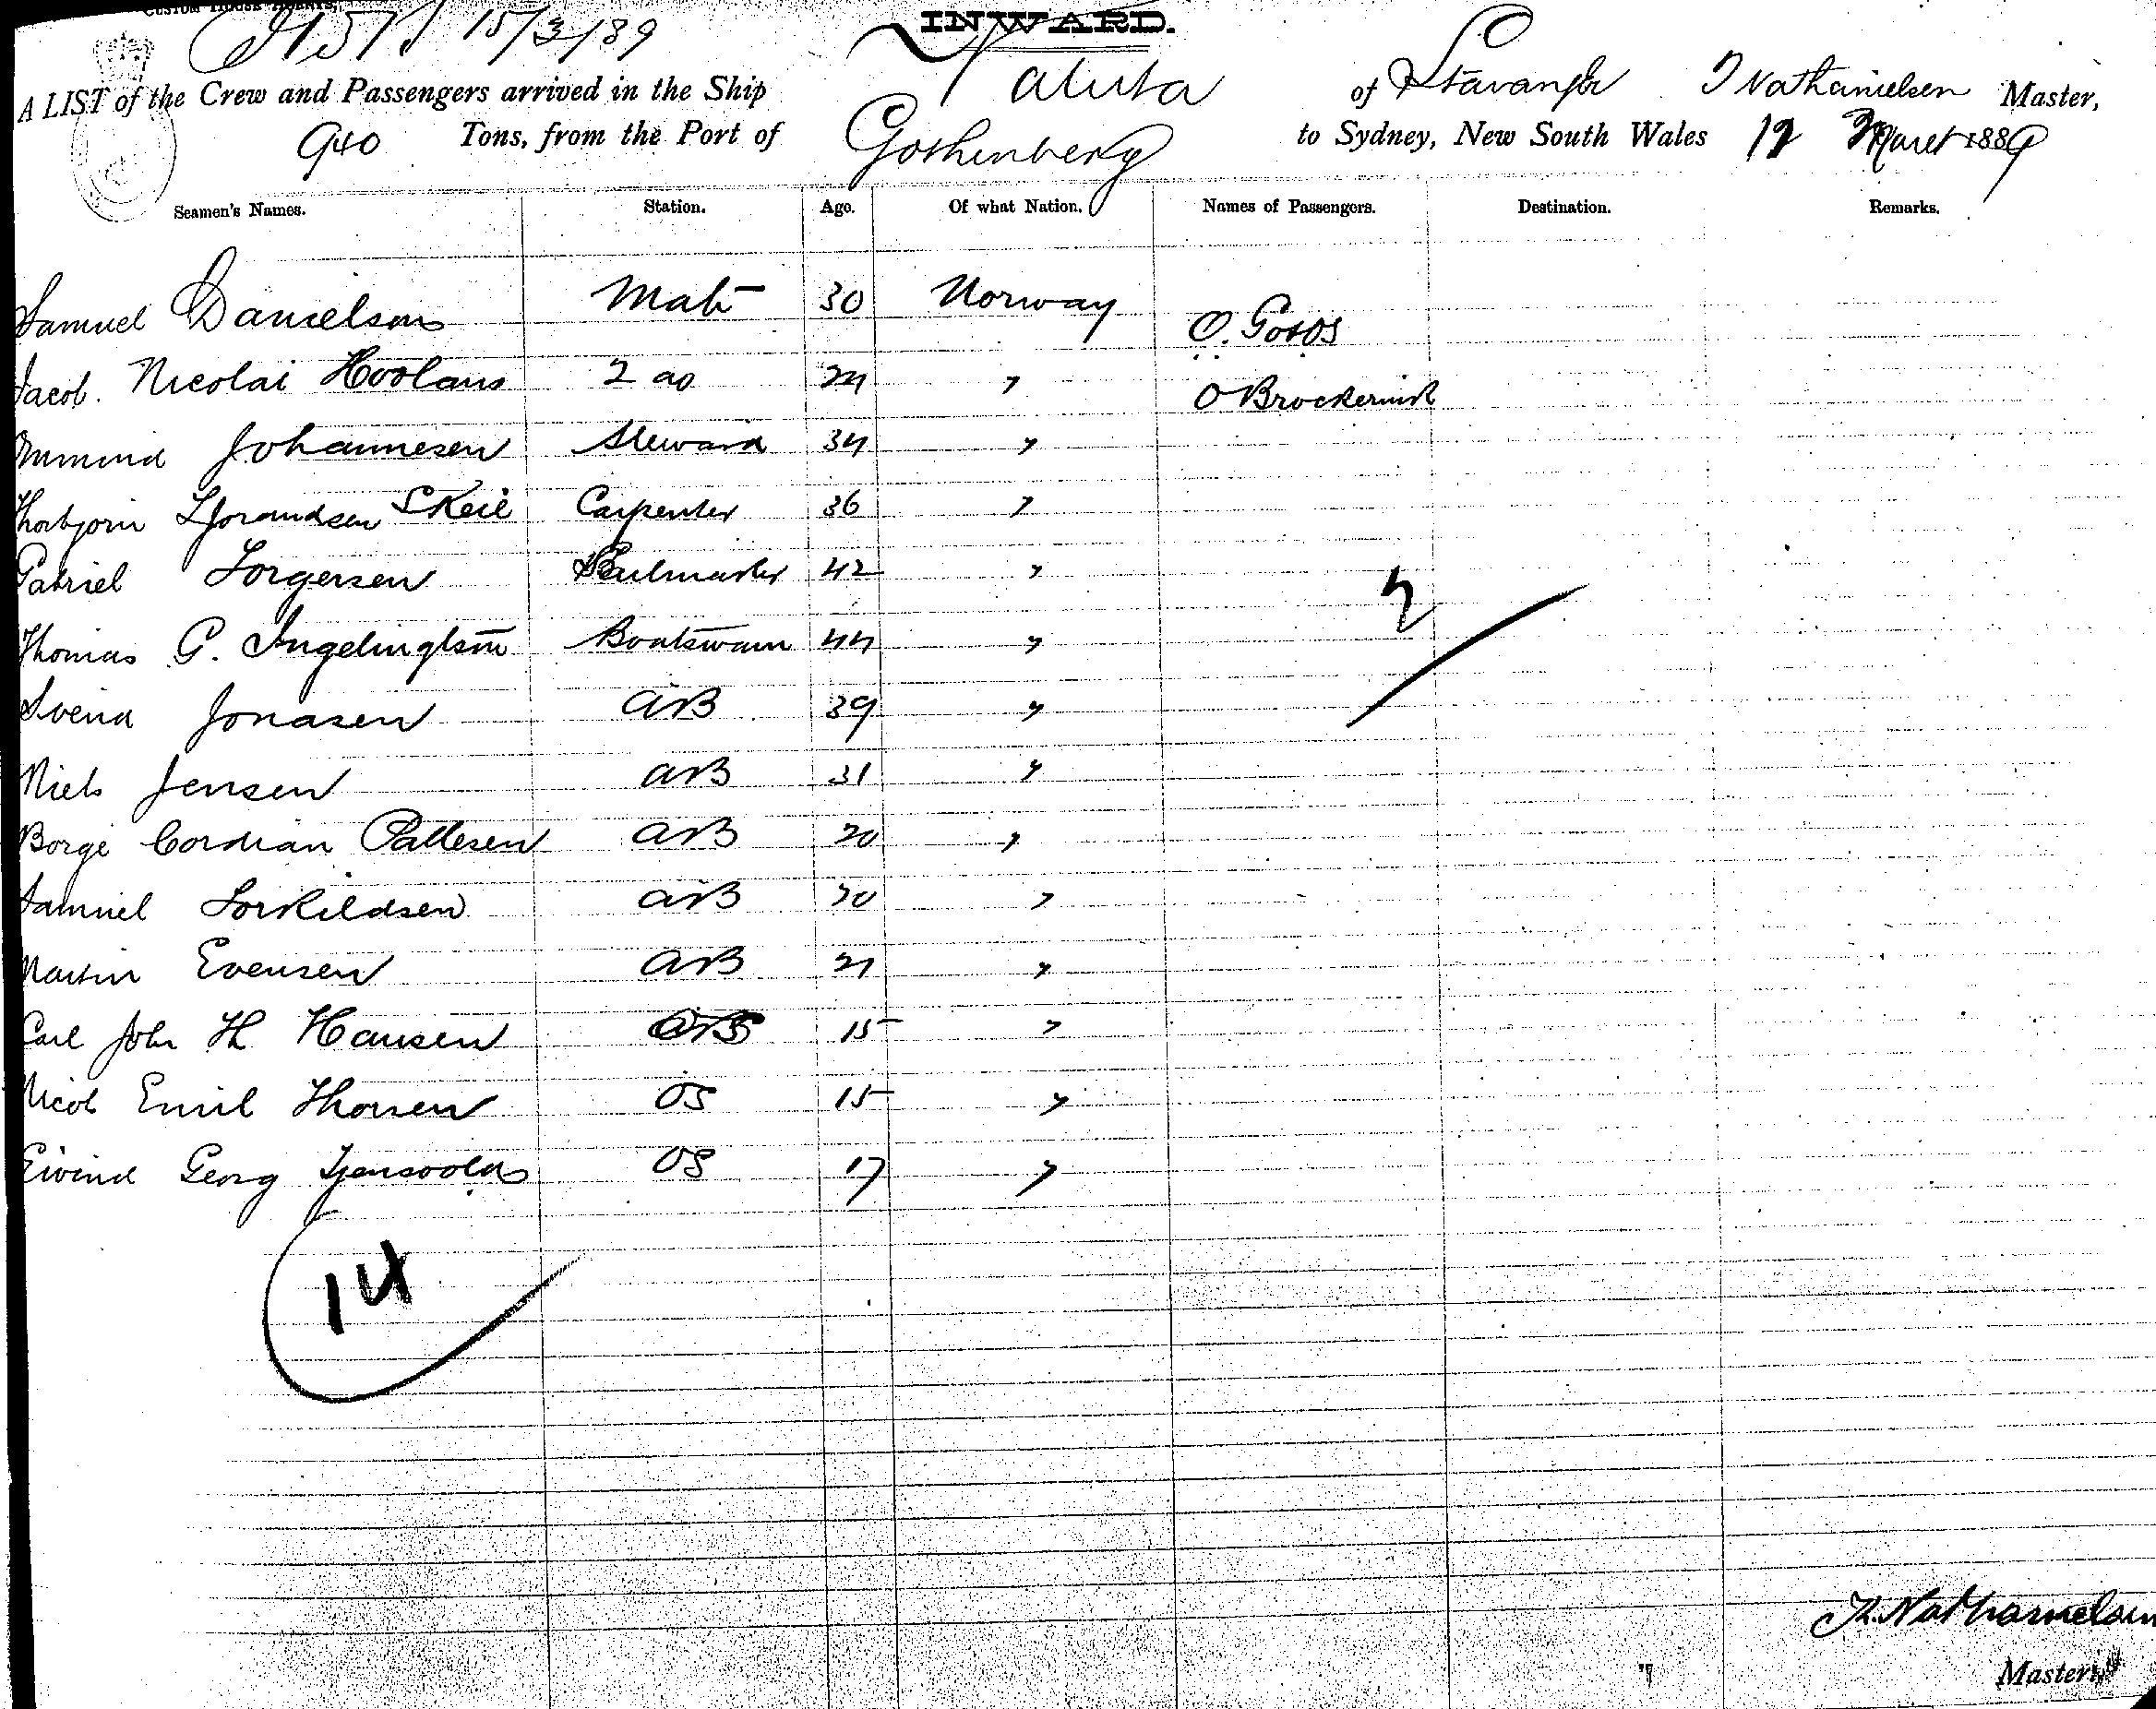 CUSTOM HOUSE AGENTS,
15/3/89
INWARD.
A LIST of the Crew and Passengers arrived in the Ship Valuta of Stavanger Nathanielsen Master,
940 Tons, from the Port of Gothenberg to Sydney, New South Wales 12 1889
Seamen's Names. Station. Age. Of what Nation. Names of Passengers. Destination. Remarks.
Samuel Danielsen Mate 30 Norway
Jacob. Nicolai 2 do 24 "
Johannesen Steward 34 "
Thorbjorn Carpenter 36 "
Gabriel Torgersen Sailmaker 42 "
Thomas G. Boatswain 44 "
Svend Jonasen AB 39 "
Niels Jensen AB 31 "
Borge Cordian Pallesen AB 20 "
Samuel Torkildsen AB 20 "
Martin Evensen AB 21 "
Carl John H Hansen 15 "
Emil Thorsen OS 15 "
Eivind Georg OS 17 "
O.
O
2
14
Nathanielsen
Master,